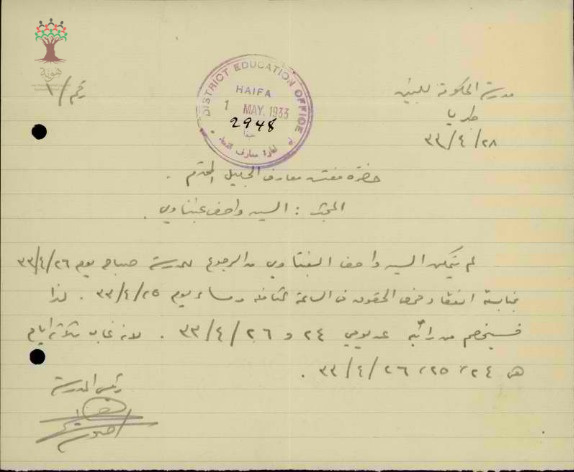 مدرسة الحكومة للبنين
طبريا
٣٣/٤/٢٨
نمرة /١
DISTRICT EDUCATION OFFICE
HAIFA
1 MAY. 1933
2948
حضرة مفتش معارف الجليل المحترم .
المبحث : السيد واصف عبناوي .
لم يتمكن السيد واصف من الرجوع للمدرسة صباح يوم ٣٣/٤/٢٦
انعقاد الحقوق في الساعة مساء يوم ٣٣/٤/٢٥ . لذا
فسيخصم من راتبه عن يومي ٢٤ و ٣٣/٤/٢٦ . لانه غاب ثلاثة ايام
هي ٢٤، ٢٥، ٣٣/٤/٢٦ .
رئيس المدرسة